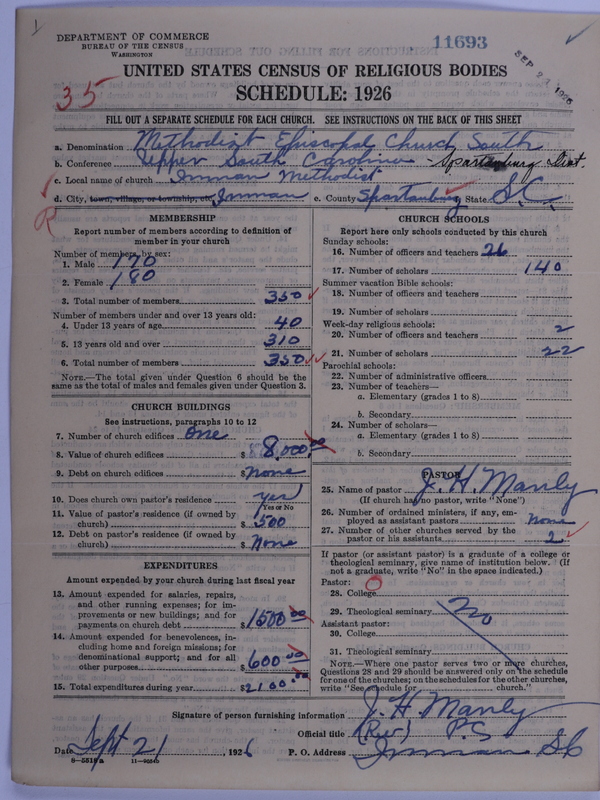 DEPARTMENT OF COMMERCE
BUREAU OF THE CENSUS
WASHINGTON
11693
SEP 27 1926
UNITED STATES CENSUS OF RELIGIOUS BODIES
35
SCHEDULE: 1926
FILL OUT A SEPARATE SCHEDULE FOR EACH CHURCH. SEE INSTRUCTIONS ON THE BACK OF THIS SHEET
a. Denomination Methodist Episcopal Church South
b. Conference Upper South Carolina - Spartanburg Dist.
c. Local name of church Inman Methodist
d. City, town, village, or township, etc. Inman e. County Spartanburg State S.C.
MEMBERSHIP
Report number of members according to definition of
member in your church
Number of members by sex:
1. Male 170
2. Female 180
3. Total number of members 350
Number of members under and over 13 years old:
4. Under 13 years of age 40
5. 13 years old and over 310
6. Total number of members 350
NOTE.—The total given under Question 6 should be the
same as the total of males and females given under Question 3.
CHURCH BUILDINGS
See instructions, paragraphs 10 to 12
7. Number of church edifices one
8. Value of church edifices $ 8,000.00
9. Debt on church edifices $ none
10. Does church own pastor's residence yes
Yes or No
11. Value of pastor's residence (if owned by
church) $ 500
12. Debt on pastor's residence (if owned by
church) $ None
EXPENDITURES
Amount expended by your church during last fiscal year
13. Amount expended for salaries, repairs,
and other running expenses; for im-
provements or new buildings; and for
payments on church debt $ 1500.00
14. Amount expended for benevolences, in-
cluding home and foreign missions; for
denominational support; and for all
other purposes $ 600.00
15. Total expenditures during year $ 2100.00
CHURCH SCHOOLS
Report here only schools conducted by this church
Sunday schools:
16. Number of officers and teachers 26
17. Number of scholars 140
Summer vacation Bible schools:
18. Number of officers and teachers
19. Number of scholars
Week-day religious schools:
20. Number of officers and teachers 2
21. Number of scholars 22
Parochial schools:
22. Number of administrative officers
23. Number of teachers—
a. Elementary (grades 1 to 8)
b. Secondary
24. Number of scholars—
a. Elementary (grades 1 to 8)
b. Secondary
PASTOR
25. Name of pastor J. H. Manly
(If church has no pastor, write "None")
26. Number of ordained ministers, if any, em-
ployed as assistant pastors None
27. Number of other churches served by the
pastor or his assistants 2
If pastor (or assistant pastor) is a graduate of a college or
theological seminary, give name of institution below. (If
not a graduate, write "No" in the space indicated.)
Pastor:
28. College
29. Theological seminary No
Assistant pastor:
30. College
31. Theological seminary
NOTE.—Where one pastor serves two or more churches,
Questions 28 and 29 should be answered only on the schedule
for one of the churches; on the schedules for the other churches,
write "See schedule for church."
Signature of person furnishing information J. H. Manly
Official title (Rev) P.C
Date Sept 21, 1926 P. O. Address Inman S C
8—5518a 11—9054b